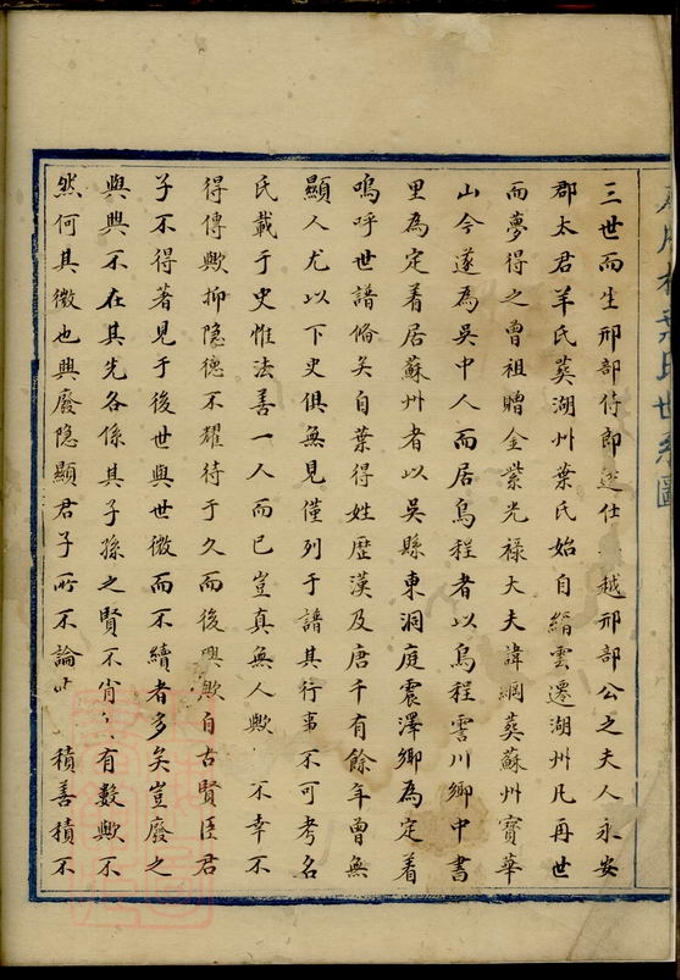 葉氏世系圖
三世而生邢部侍郎逵仕越邢部公之夫人永安
郡太君羊氏葬湖州葉氏始自縉雲遷湖州凡再世
而夢得之曾祖贈金紫光祿大夫諱綱葬蘇州寶華
山今遂為吳中人而居烏程者以烏程霅川鄉中書
里為定着居蘇州者以吳縣東洞庭震澤鄉為定着
嗚呼世譜脩矣自葉得姓歷漢及唐千有餘年曾無
顯人尤以下史俱無見僅列于譜其行事不可考名
氏載于史惟法善一人而已豈真無人歟不幸不
得傳歟抑隐德不耀待于久而後興歟自古賢臣君
子不得著見于後世與世微而不續者多矣豈廢之
與興不在其先各係其子孫之賢不肖有數歟不
然何其微也興廢隐顯君子所不論積善積不